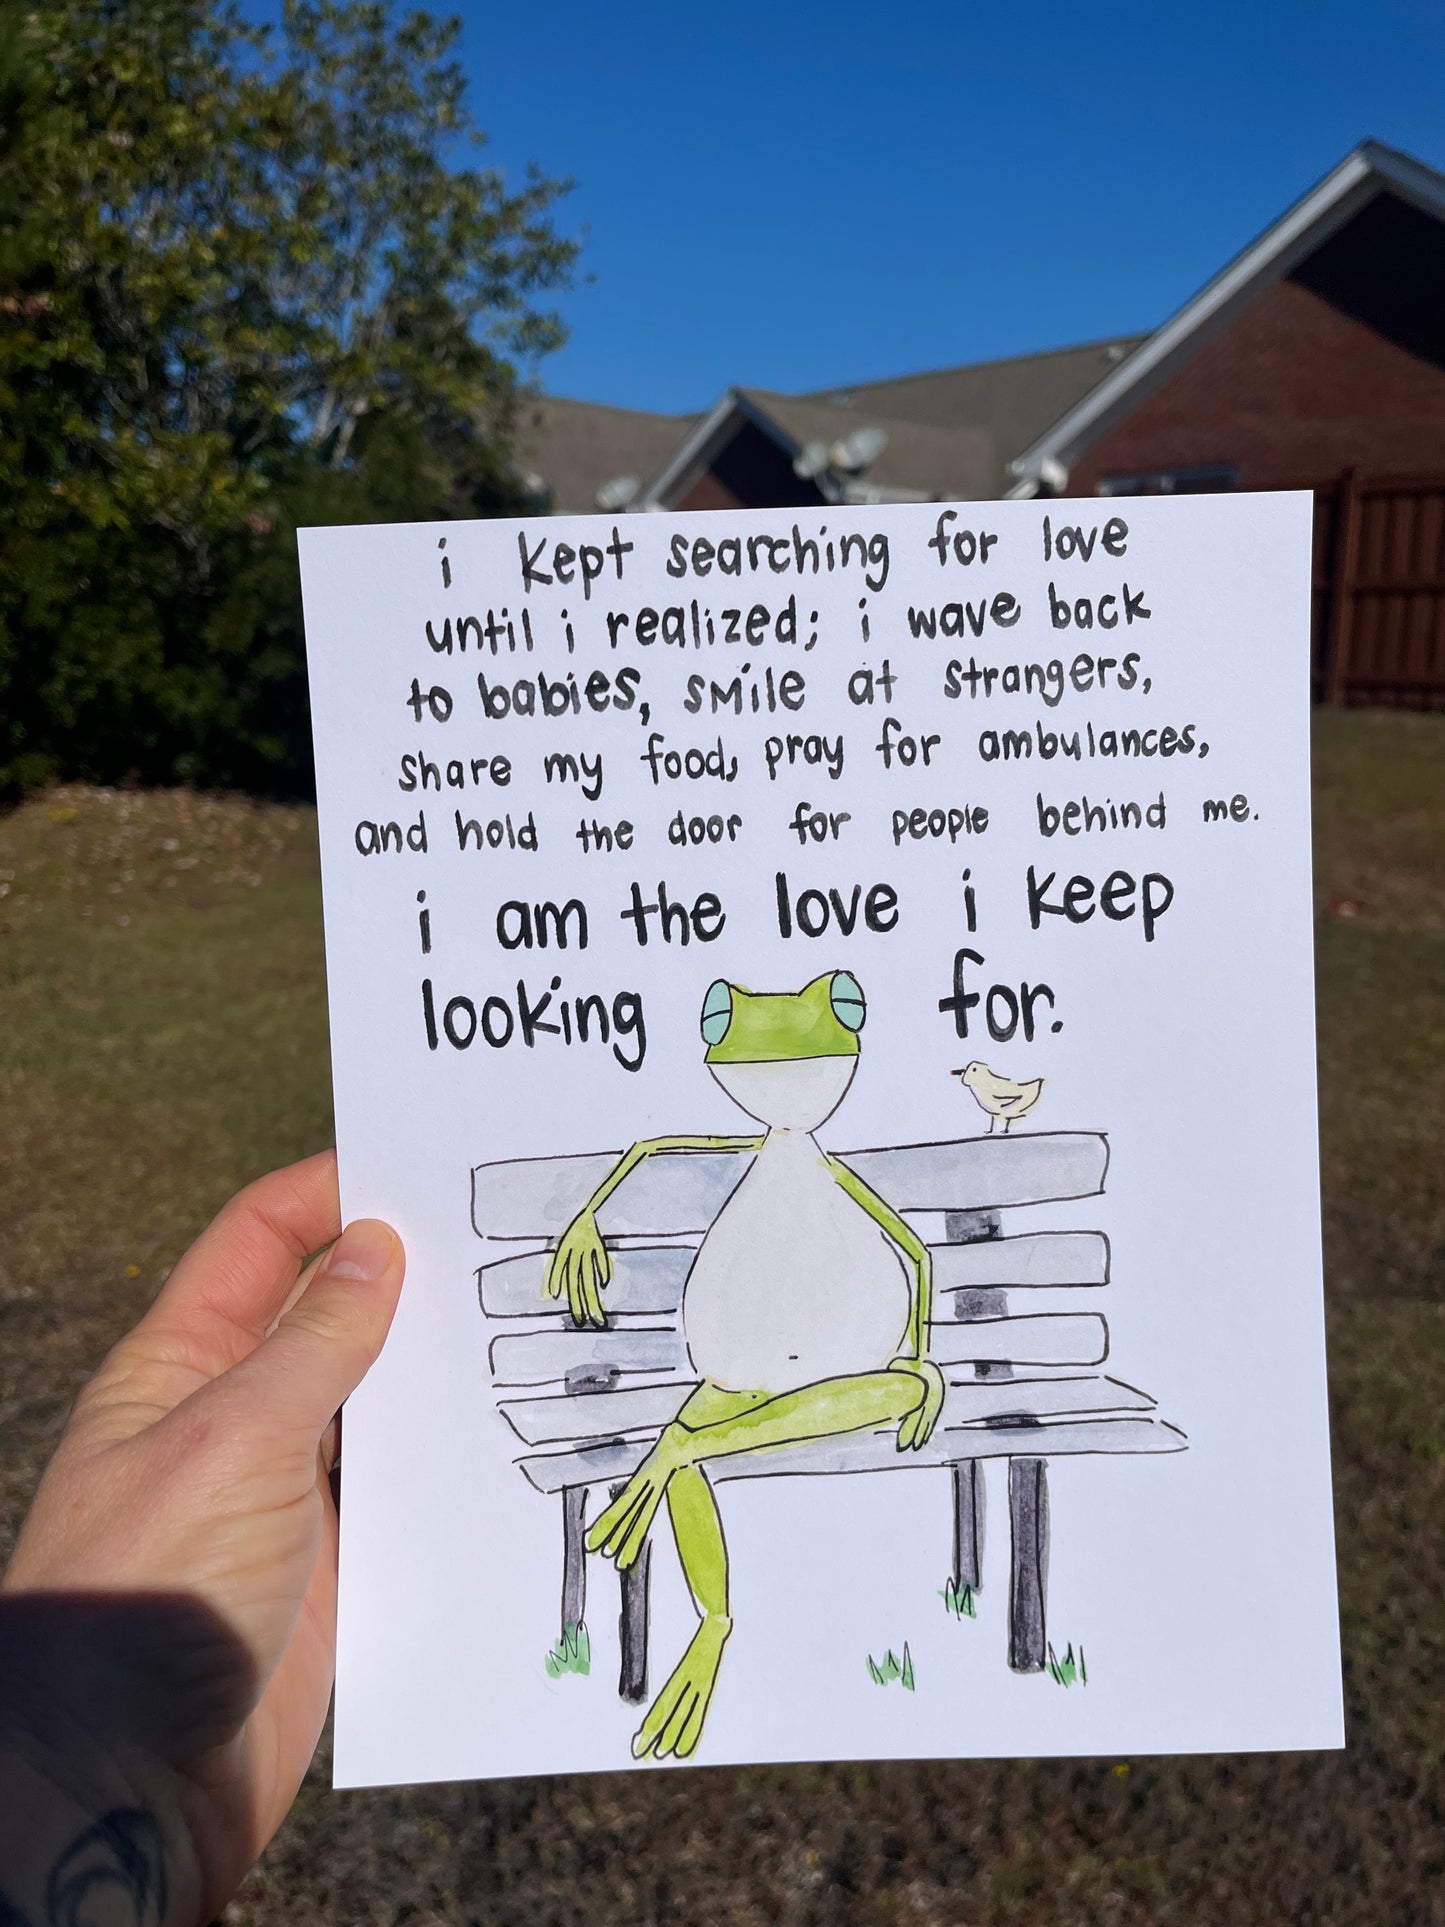 i kept searching for love
until i realized; i wave back
to babies, smile at strangers,
share my food, pray for ambulances,
and hold the door for people behind me.
i am the love i keep
looking for.